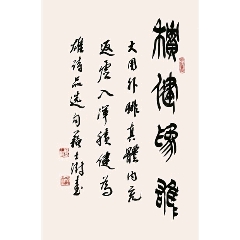 積健為雄
大用外腓真體内充
返虛入渾積健為
雄詩品選句蘇士澍書